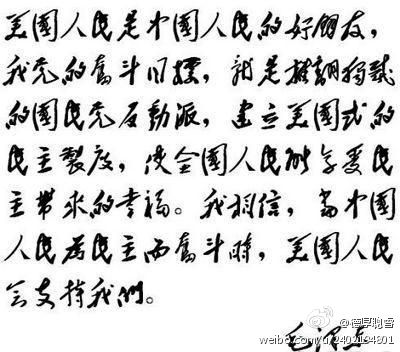 美國人民是中國人民的好朋友，
我党的奮斗目標，就是推翻獨裁
的國民党反動派，建立美國式的
民主製度，使全國人民能享受民
主帶來的幸福。我相信，當中國
人民為民主而奮斗時，美國人民
会支持我們。
毛澤东
weibo.com/u/2402134801